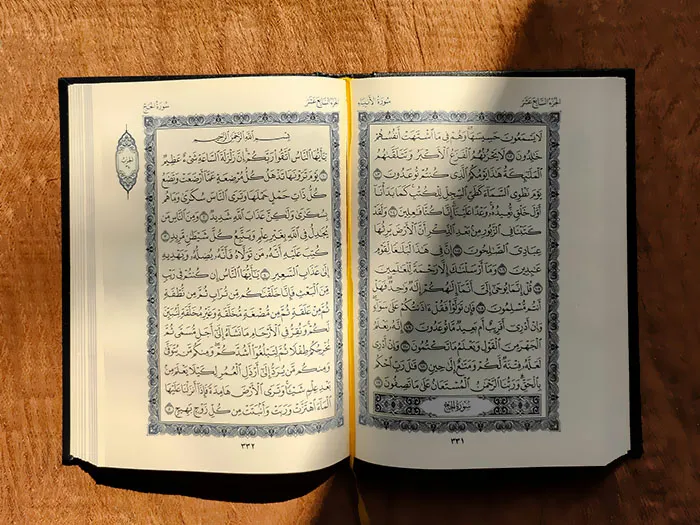 الجزء السابع عشر
سورة الأنبياء
لَا يَسْمَعُونَ حَسِيسَهَا وَهُمْ فِي مَا ٱشْتَهَتْ أَنفُسُهُمْ
خَٰلِدُونَ ١٠٢ لَا يَحْزُنُهُمُ ٱلْفَزَعُ ٱلْأَكْبَرُ وَتَتَلَقَّىٰهُمُ
ٱلْمَلَٰٓئِكَةُ هَٰذَا يَوْمُكُمُ ٱلَّذِي كُنتُمْ تُوعَدُونَ ١٠٣
يَوْمَ نَطْوِي ٱلسَّمَآءَ كَطَيِّ ٱلسِّجِلِّ لِلْكُتُبِ كَمَا بَدَأْنَآ
أَوَّلَ خَلْقٍ نُّعِيدُهُۥ وَعْدًا عَلَيْنَآ إِنَّا كُنَّا فَٰعِلِينَ ١٠٤ وَلَقَدْ
كَتَبْنَا فِي ٱلزَّبُورِ مِنۢ بَعْدِ ٱلذِّكْرِ أَنَّ ٱلْأَرْضَ يَرِثُهَا
عِبَادِيَ ٱلصَّٰلِحُونَ ١٠٥ إِنَّ فِي هَٰذَا لَبَلَٰغًا لِّقَوْمٍ
عَٰبِدِينَ ١٠٦ وَمَآ أَرْسَلْنَٰكَ إِلَّا رَحْمَةً لِّلْعَٰلَمِينَ
١٠٧ قُلْ إِنَّمَا يُوحَىٰٓ إِلَيَّ أَنَّمَآ إِلَٰهُكُمْ إِلَٰهٌ وَٰحِدٌ فَهَلْ
أَنتُم مُّسْلِمُونَ ١٠٨ فَإِن تَوَلَّوْا۟ فَقُلْ ءَاذَنتُكُمْ عَلَىٰ سَوَآءٍ
وَإِنْ أَدْرِيٓ أَقَرِيبٌ أَم بَعِيدٌ مَّا تُوعَدُونَ ١٠٩ إِنَّهُۥ يَعْلَمُ
ٱلْجَهْرَ مِنَ ٱلْقَوْلِ وَيَعْلَمُ مَا تَكْتُمُونَ ١١٠ وَإِنْ أَدْرِي
لَعَلَّهُۥ فِتْنَةٌ لَّكُمْ وَمَتَٰعٌ إِلَىٰ حِينٍ ١١١ قَٰلَ رَبِّ ٱحْكُم
بِٱلْحَقِّ وَرَبُّنَا ٱلرَّحْمَٰنُ ٱلْمُسْتَعَانُ عَلَىٰ مَا تَصِفُونَ ١١٢
سورة الحج
٣٣١
الجزء السابع عشر
سورة الحج
بِسْمِ ٱللَّهِ ٱلرَّحْمَٰنِ ٱلرَّحِيمِ
يَٰٓأَيُّهَا ٱلنَّاسُ ٱتَّقُوا۟ رَبَّكُمْ إِنَّ زَلْزَلَةَ ٱلسَّاعَةِ شَيْءٌ عَظِيمٌ
١ يَوْمَ تَرَوْنَهَا تَذْهَلُ كُلُّ مُرْضِعَةٍ عَمَّآ أَرْضَعَتْ وَتَضَعُ
كُلُّ ذَاتِ حَمْلٍ حَمْلَهَا وَتَرَى ٱلنَّاسَ سُكَٰرَىٰ وَمَا هُم
بِسُكَٰرَىٰ وَلَٰكِنَّ عَذَابَ ٱللَّهِ شَدِيدٌ ٢ وَمِنَ ٱلنَّاسِ مَن
يُجَٰدِلُ فِي ٱللَّهِ بِغَيْرِ عِلْمٍ وَيَتَّبِعُ كُلَّ شَيْطَٰنٍ مَّرِيدٍ ٣
كُتِبَ عَلَيْهِ أَنَّهُۥ مَن تَوَلَّاهُ فَأَنَّهُۥ يُضِلُّهُۥ وَيَهْدِيهِ
إِلَىٰ عَذَابِ ٱلسَّعِيرِ ٤ يَٰٓأَيُّهَا ٱلنَّاسُ إِن كُنتُمْ فِي رَيْبٍ
مِّنَ ٱلْبَعْثِ فَإِنَّا خَلَقْنَٰكُم مِّن تُرَابٍ ثُمَّ مِن نُّطْفَةٍ
ثُمَّ مِنْ عَلَقَةٍ ثُمَّ مِن مُّضْغَةٍ مُّخَلَّقَةٍ وَغَيْرِ مُخَلَّقَةٍ لِّنُبَيِّنَ
لَكُمْ وَنُقِرُّ فِي ٱلْأَرْحَامِ مَا نَشَآءُ إِلَىٰٓ أَجَلٍ مُّسَمًّى ثُمَّ
نُخْرِجُكُمْ طِفْلًا ثُمَّ لِتَبْلُغُوٓا۟ أَشُدَّكُمْ وَمِنكُم مَّن يُتَوَفَّىٰ
وَمِنكُم مَّن يُرَدُّ إِلَىٰٓ أَرْذَلِ ٱلْعُمُرِ لِكَيْلَا يَعْلَمَ مِنۢ
بَعْدِ عِلْمٍ شَيْـًٔا وَتَرَى ٱلْأَرْضَ هَامِدَةً فَإِذَآ أَنزَلْنَا عَلَيْهَا
ٱلْمَآءَ ٱهْتَزَّتْ وَرَبَتْ وَأَنۢبَتَتْ مِن كُلِّ زَوْجٍۭ بَهِيجٍ ٥
٣٣٢